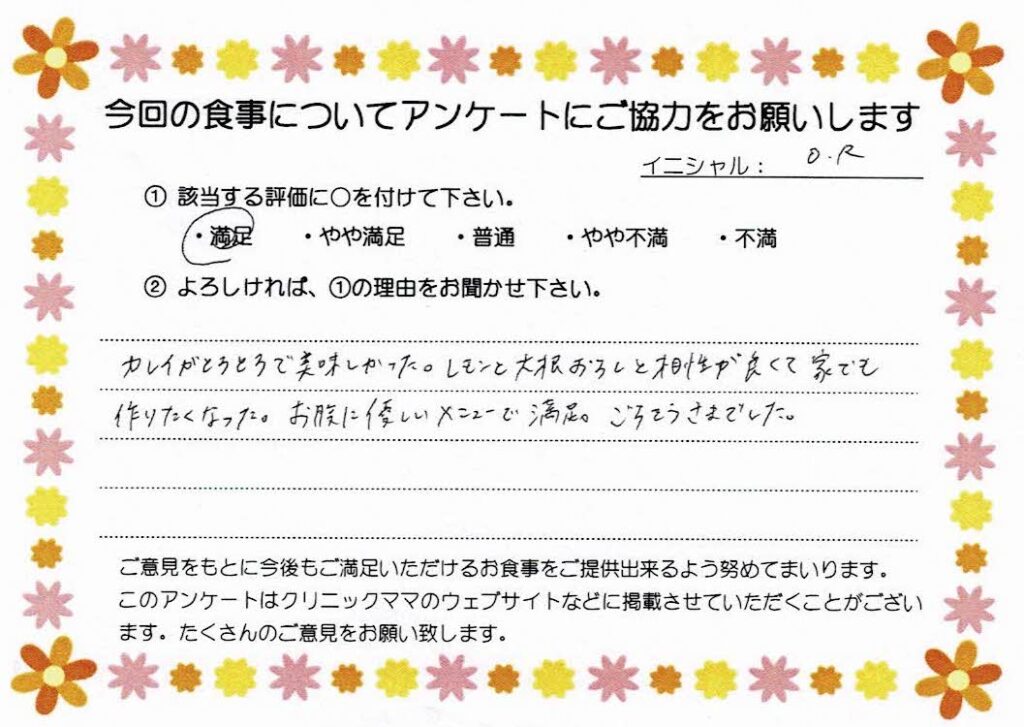 今回の食事についてアンケートにご協力をお願いします
イニシャル： O.R
① 該当する評価に〇を付けて下さい。
・満足 ・やや満足 ・普通 ・やや不満 ・不満
② よろしければ、①の理由をお聞かせ下さい。
カレイがとろとろで美味しかった。レモンと大根おろしと相性が良くて家でも
作りたくなった。お腹に優しいメニューで満足。ごちそうさまでした。
ご意見をもとに今後もご満足いただけるお食事をご提供出来るよう努めてまいります。
このアンケートはクリニックママのウェブサイトなどに掲載させていただくことがござい
ます。たくさんのご意見をお願い致します。